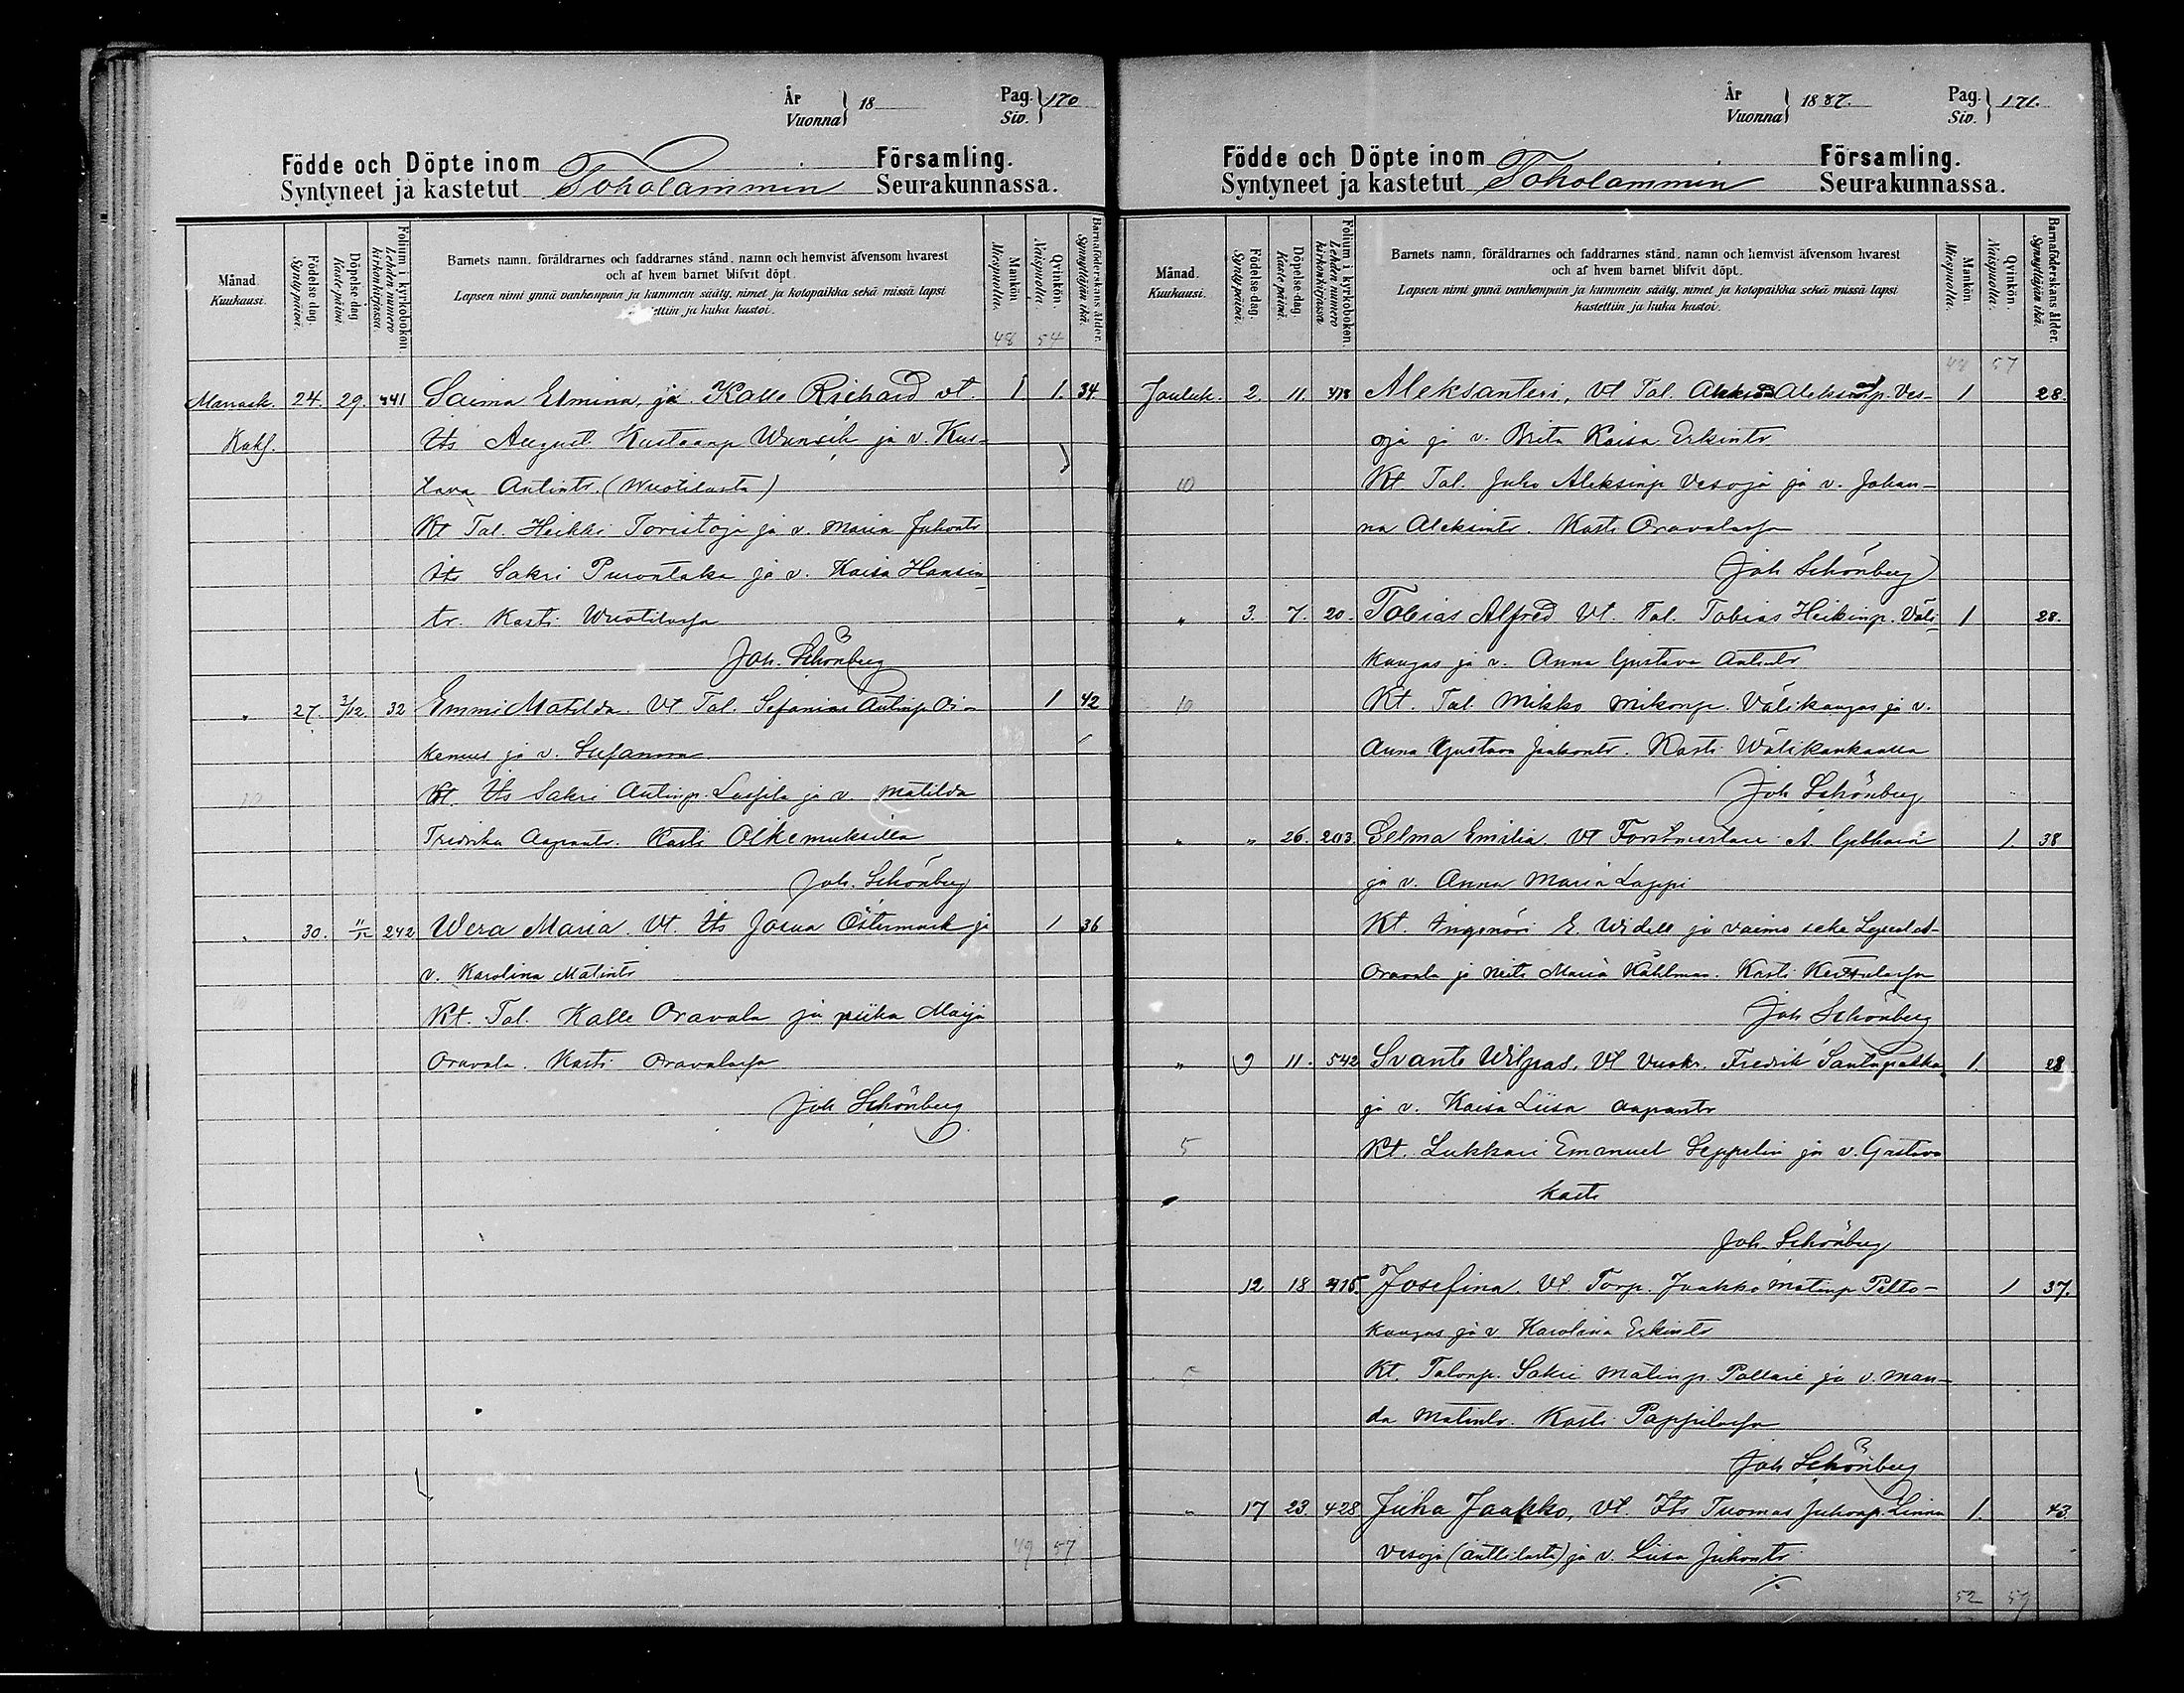 År
Vuonna } 18
Pag.
Siv. } 170
Födde och Döpte inom Församling.
Syntyneet ja kastetut Toholammin Seurakunnassa.
Månad. Kuukausi.
Födelse-dag. Synty-päivä.
Döpelse-dag. Kaste-päivä.
Folium i kyrkoboken. Lehden numero kirkonkirjassa.
Barnets namn, föräldrarnes och faddrarnes stånd, namn och hemvist äfvensom hvarest
och af hvem barnet blifvit döpt.
Lapsen nimi ynnä vanhempain ja kummein sääty, nimet ja kotopaikka sekä missä lapsi
kastettiin ja kuka kastoi.
Mankön. Miespuolia.
Qvinkön. Naispuolia.
Barnaföderskans ålder. Synnyttäjän ikä.
48 54
Marrask. 24. 29. 441 Saima Elmina, ja Kalle Richard vt. 1 1. 34
Kaks. Its August Kustaanp Wunsik ja v. Kus-
tava Antintr. (Wuotilasta)
Kt Tal. Heikki Toristoja ja v. Maria Juhontr
Its Sakri Purontaka ja v. Kaisa Hansin
tr. Kasti Wuotilassa
Joh. Schönberg
" 27. 3/12. 32 Emmi Matilda. Vt Tal. Sefanias Antinp. Oi- 1 42
kemus ja v. Susanna
10 Kt. Its Sakri Antinp. Lassila ja v. Matilda
Fredrika Aapontr. Kasti Oikemuksilla
Joh. Schönberg
" 30. 11/12 242 Wera Maria. Vt. Its Josua Östermark ja 1 36
v. Karolina Matintr
10 Kt. Tal. Kalle Oravala ja piika Maija
Oravala. Kasti Oravalassa
Joh Schönberg
49 57
År
Vuonna } 1887.
Pag.
Siv. } 171.
Födde och Döpte inom Församling.
Syntyneet ja kastetut Toholammin Seurakunnassa.
Månad. Kuukausi.
Födelse-dag. Synty-päivä.
Döpelse-dag. Kaste-päivä.
Folium i kyrkoboken. Lehden numero kirkonkirjassa
Barnets namn, föräldrarnes och faddrarnes stånd, namn och hemvist äfvensom hvarest
och af hvem barnet blifvit döpt.
Lapsen nimi ynnä vanhempain ja kummein sääty, nimet ja kotopaikka sekä missä lapsi
kastettiin ja kuka kastoi.
Mankön. Miespuolia.
Qvinkön. Naispuolia.
Barnaföderskans ålder. Synnyttäjän ikä.
49 57
Jouluk. 2. 11. 418 Aleksanteri, Vt Tal. Aleksinp. Ves- 1 28.
oja ja v. Brita Kaisa Erkintr
10 Kt Tal. Juho Aleksinp Vesoja ja v. Johan-
na Aleksintr. Kasti Oravalassa
Joh Schönberg
" 3. 7. 20. Tobias Alfred Vt. Tal. Tobias Heikinp. Väli- 1 28.
kangas ja v. Anna Gustava Antintr
10 Kt. Tal. Mikko Mikonp. Välikangas ja v.
Anna Gustava Jaakontr. Kasti Wälikankaalla
Joh Schönberg
" " 26. 203. Selma Emilia. Vt Forstmestari A. 1. 38
ja v. Anna Maria Lappi
Kt. Ingenöri E. Widell ja vaimo seka
Oravala ja neiti Maria Kählman. Kasti
Joh Schönberg
" 9 11. 542 Svante Wilpas. Vt Vuokr. Fredrik Santapakka 1. 28
ja v. Kaisa Liisa Aapontr
5 Kt. Lukkari Emanuel Leppelin ja v. Gustava
kasti
Joh. Schönberg
12 18 415. Josefina. Vt. Torp. Jaakko Matinp Pelto- 1 37.
kangas ja v Karolina Erkintr
5 Kt. Talonp. Sakri Matinp. Pollari ja v. Man-
da Matintr. Kasti Pappilassa
Joh Schönberg
" 17 23. 428 Juha Jaakko, Vt. Its Tuomas Juhonp. Linna 1. 43.
vesoja (Anttilasta) ja v. Liisa Juhontr
52 59